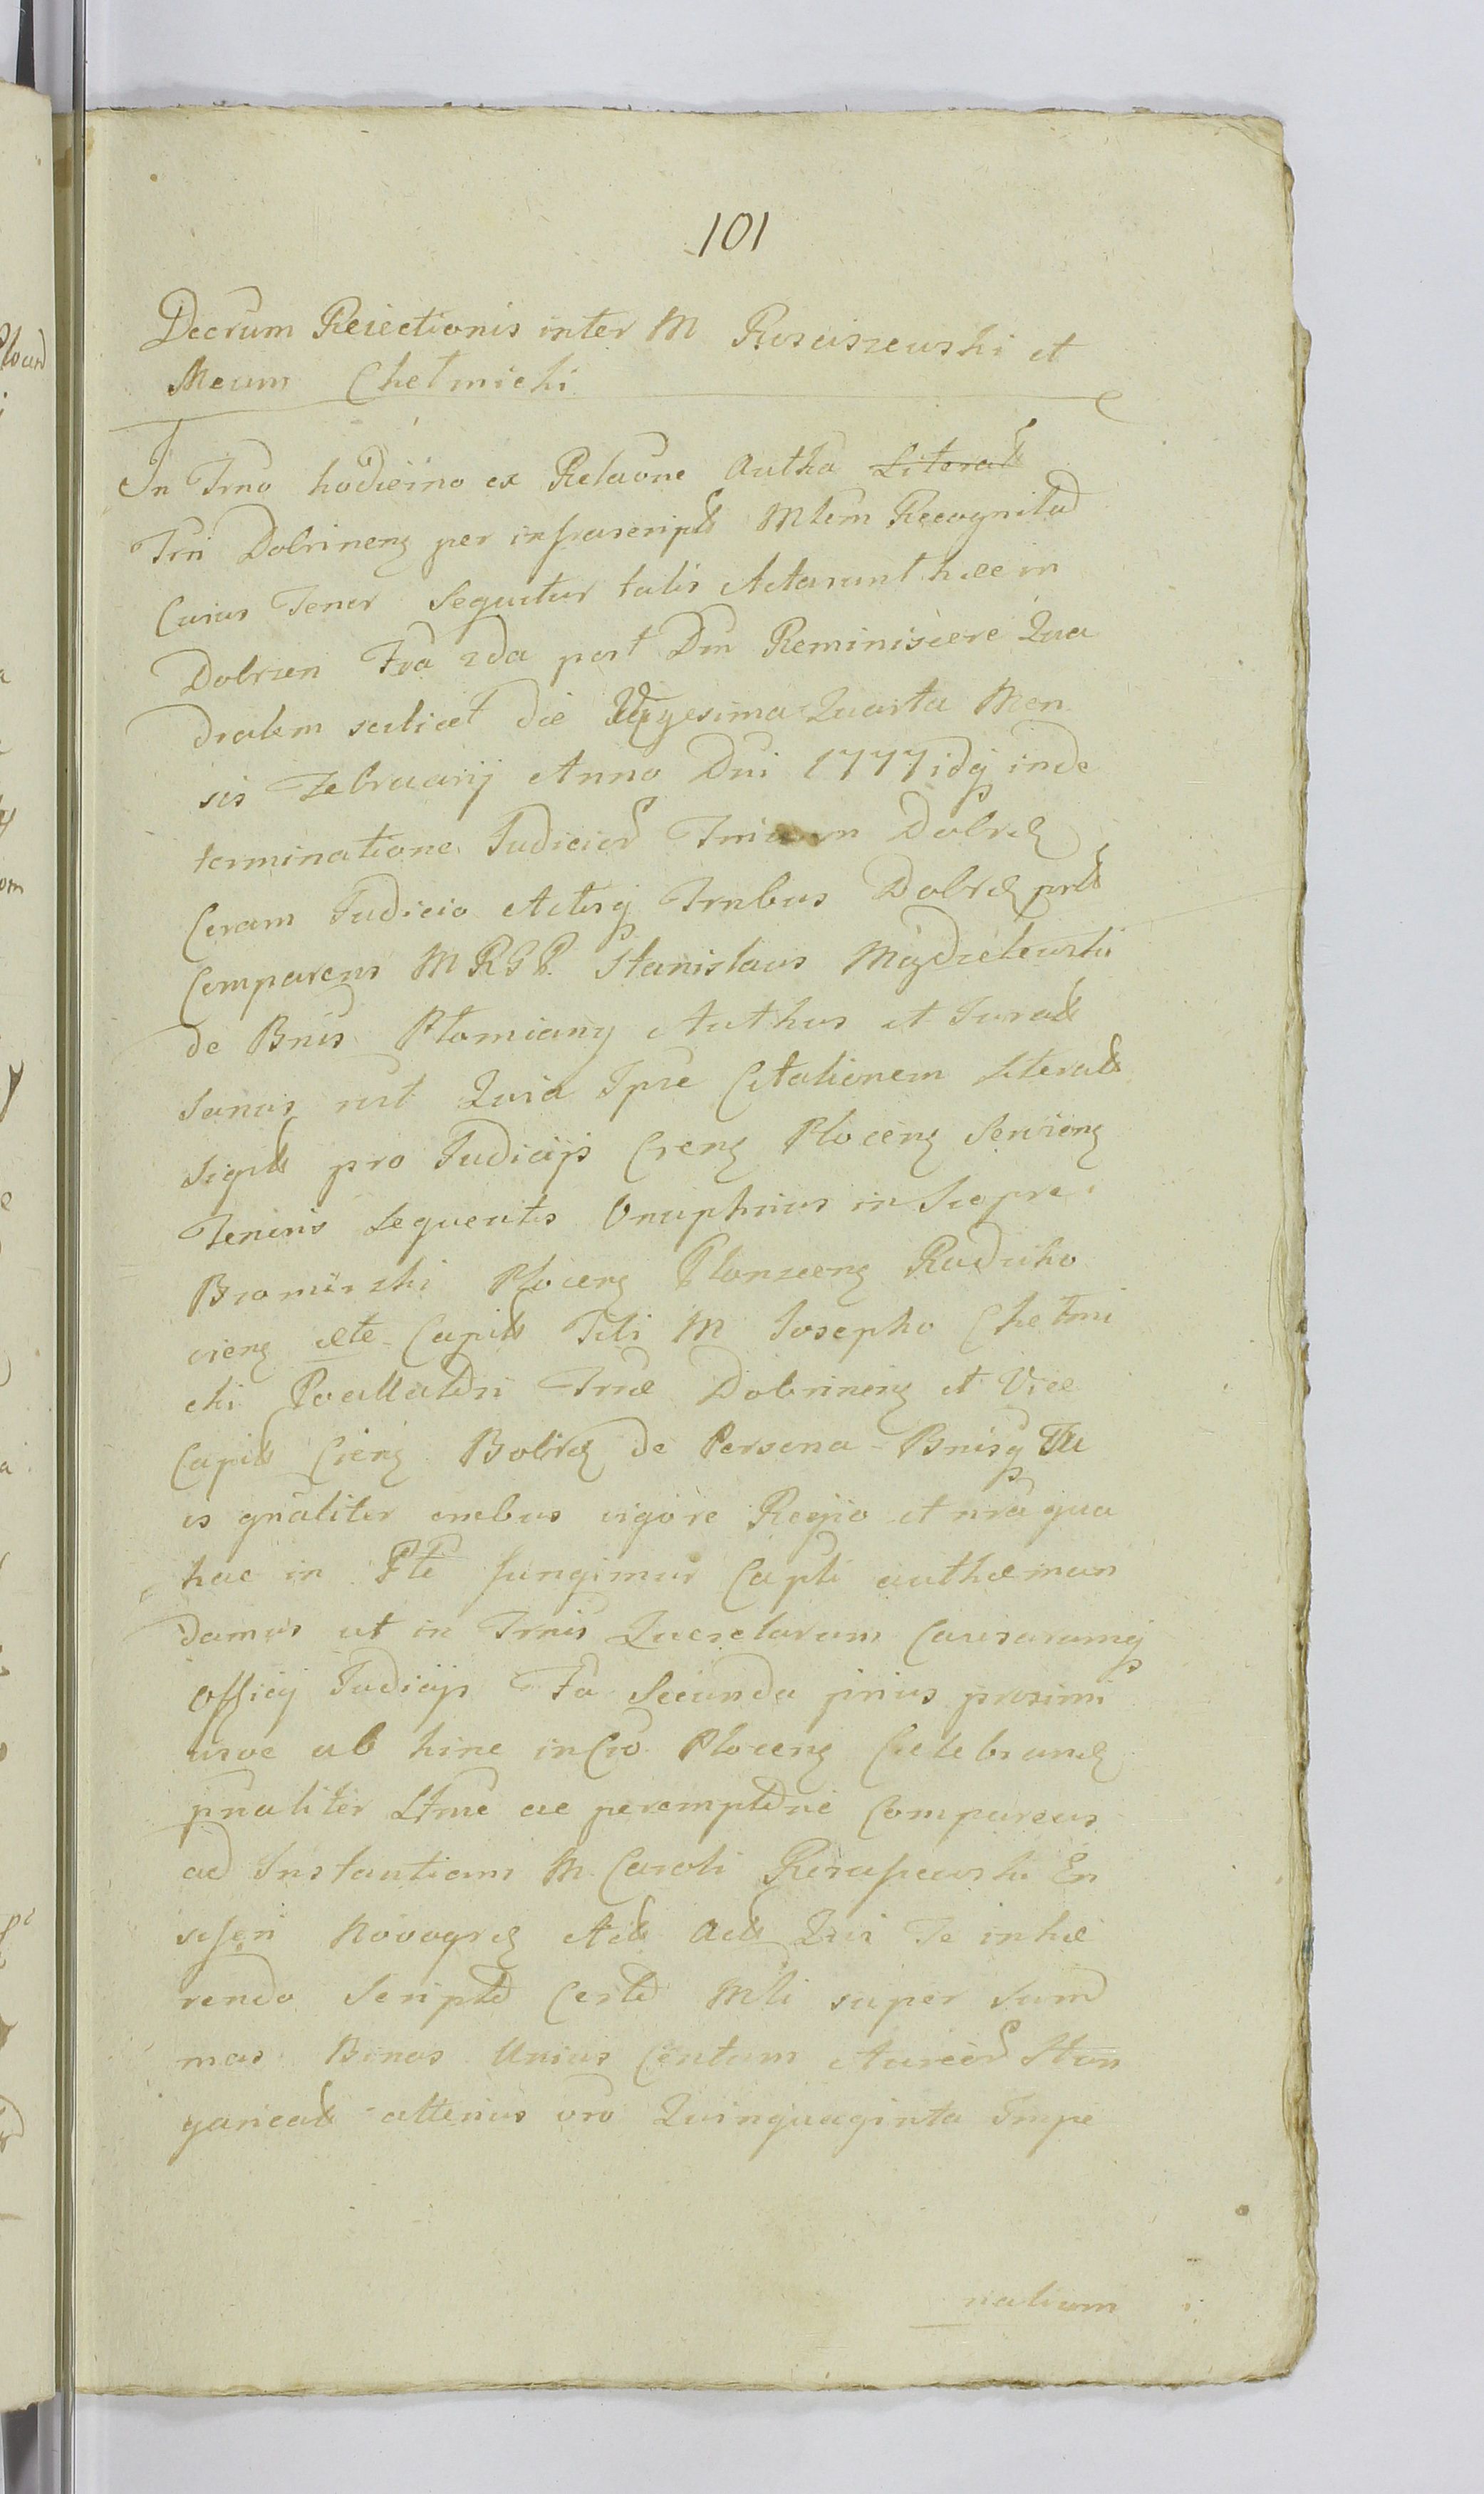 101
Decrum Reiectionis inter M Rosciszewski et
Meum Chełmicki
In Trno hodierno ex Relaone Autha Literali
Trri Dobrinens per infrascripti Mlem Recognitad
Cuius Tenor Sequitur talis Acta sunt hæc in
Dobrzen Fra 2da post Dni Reminiscere Qua
dralem scilicet die Vigesima Quarta Men
sis Februarij Anno Dni 1777 idq inde
terminatione Judicior Trium Dobrz
Coram Judicio Actisq Trrbus Dobrz prli
Comparens MRGP. Stanislaus
de Bnis Płomiany Authus et Jurati
Sanus rst Quia Ipse Citationem Literali
Sigili pro Judicijs Crens Plocens Serviens
Tenoris Sequentis Onuphrius in Siepre
Bromirski Plocens Plonscens Radziko
viens ette Capits Tibi M Josepho Chełmi
cki Pocillatori Trræ Dobrinens et Vice
Capits Crens Bobrz de Persona Bnisq Tu
is gnaliter omnibus vigore Regio et nra qua
hac in Pte fungimur Capli autha man
damus ut in Trnis Querelarum Causarumq
officij Judicijs Fa Secunda prius proximi
usve ab hinc in Cro Plocens Celebrand
pnaliter Ltme ac peremptorie Compareas
ad Instantiam M. Caroli Rosciszewski En
siferi Novogrod Acts Qui Te inhæ
rendo Scripto Certo Mti super Sum
mas Binas Unius Centum Aureor Hun
garicali alterius vro Quinquaginta Impe
rialium